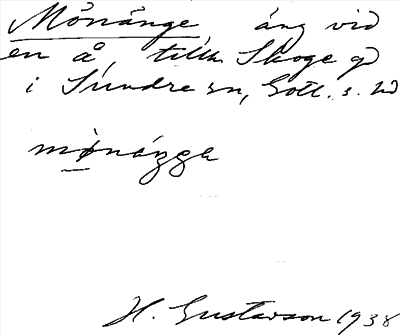 Mȯnȧnge, äng vid
en å, tillh. Skoge gd
i Sundre sn, Gotl. s. hd
mønáŋga
H. Gustavson 1938